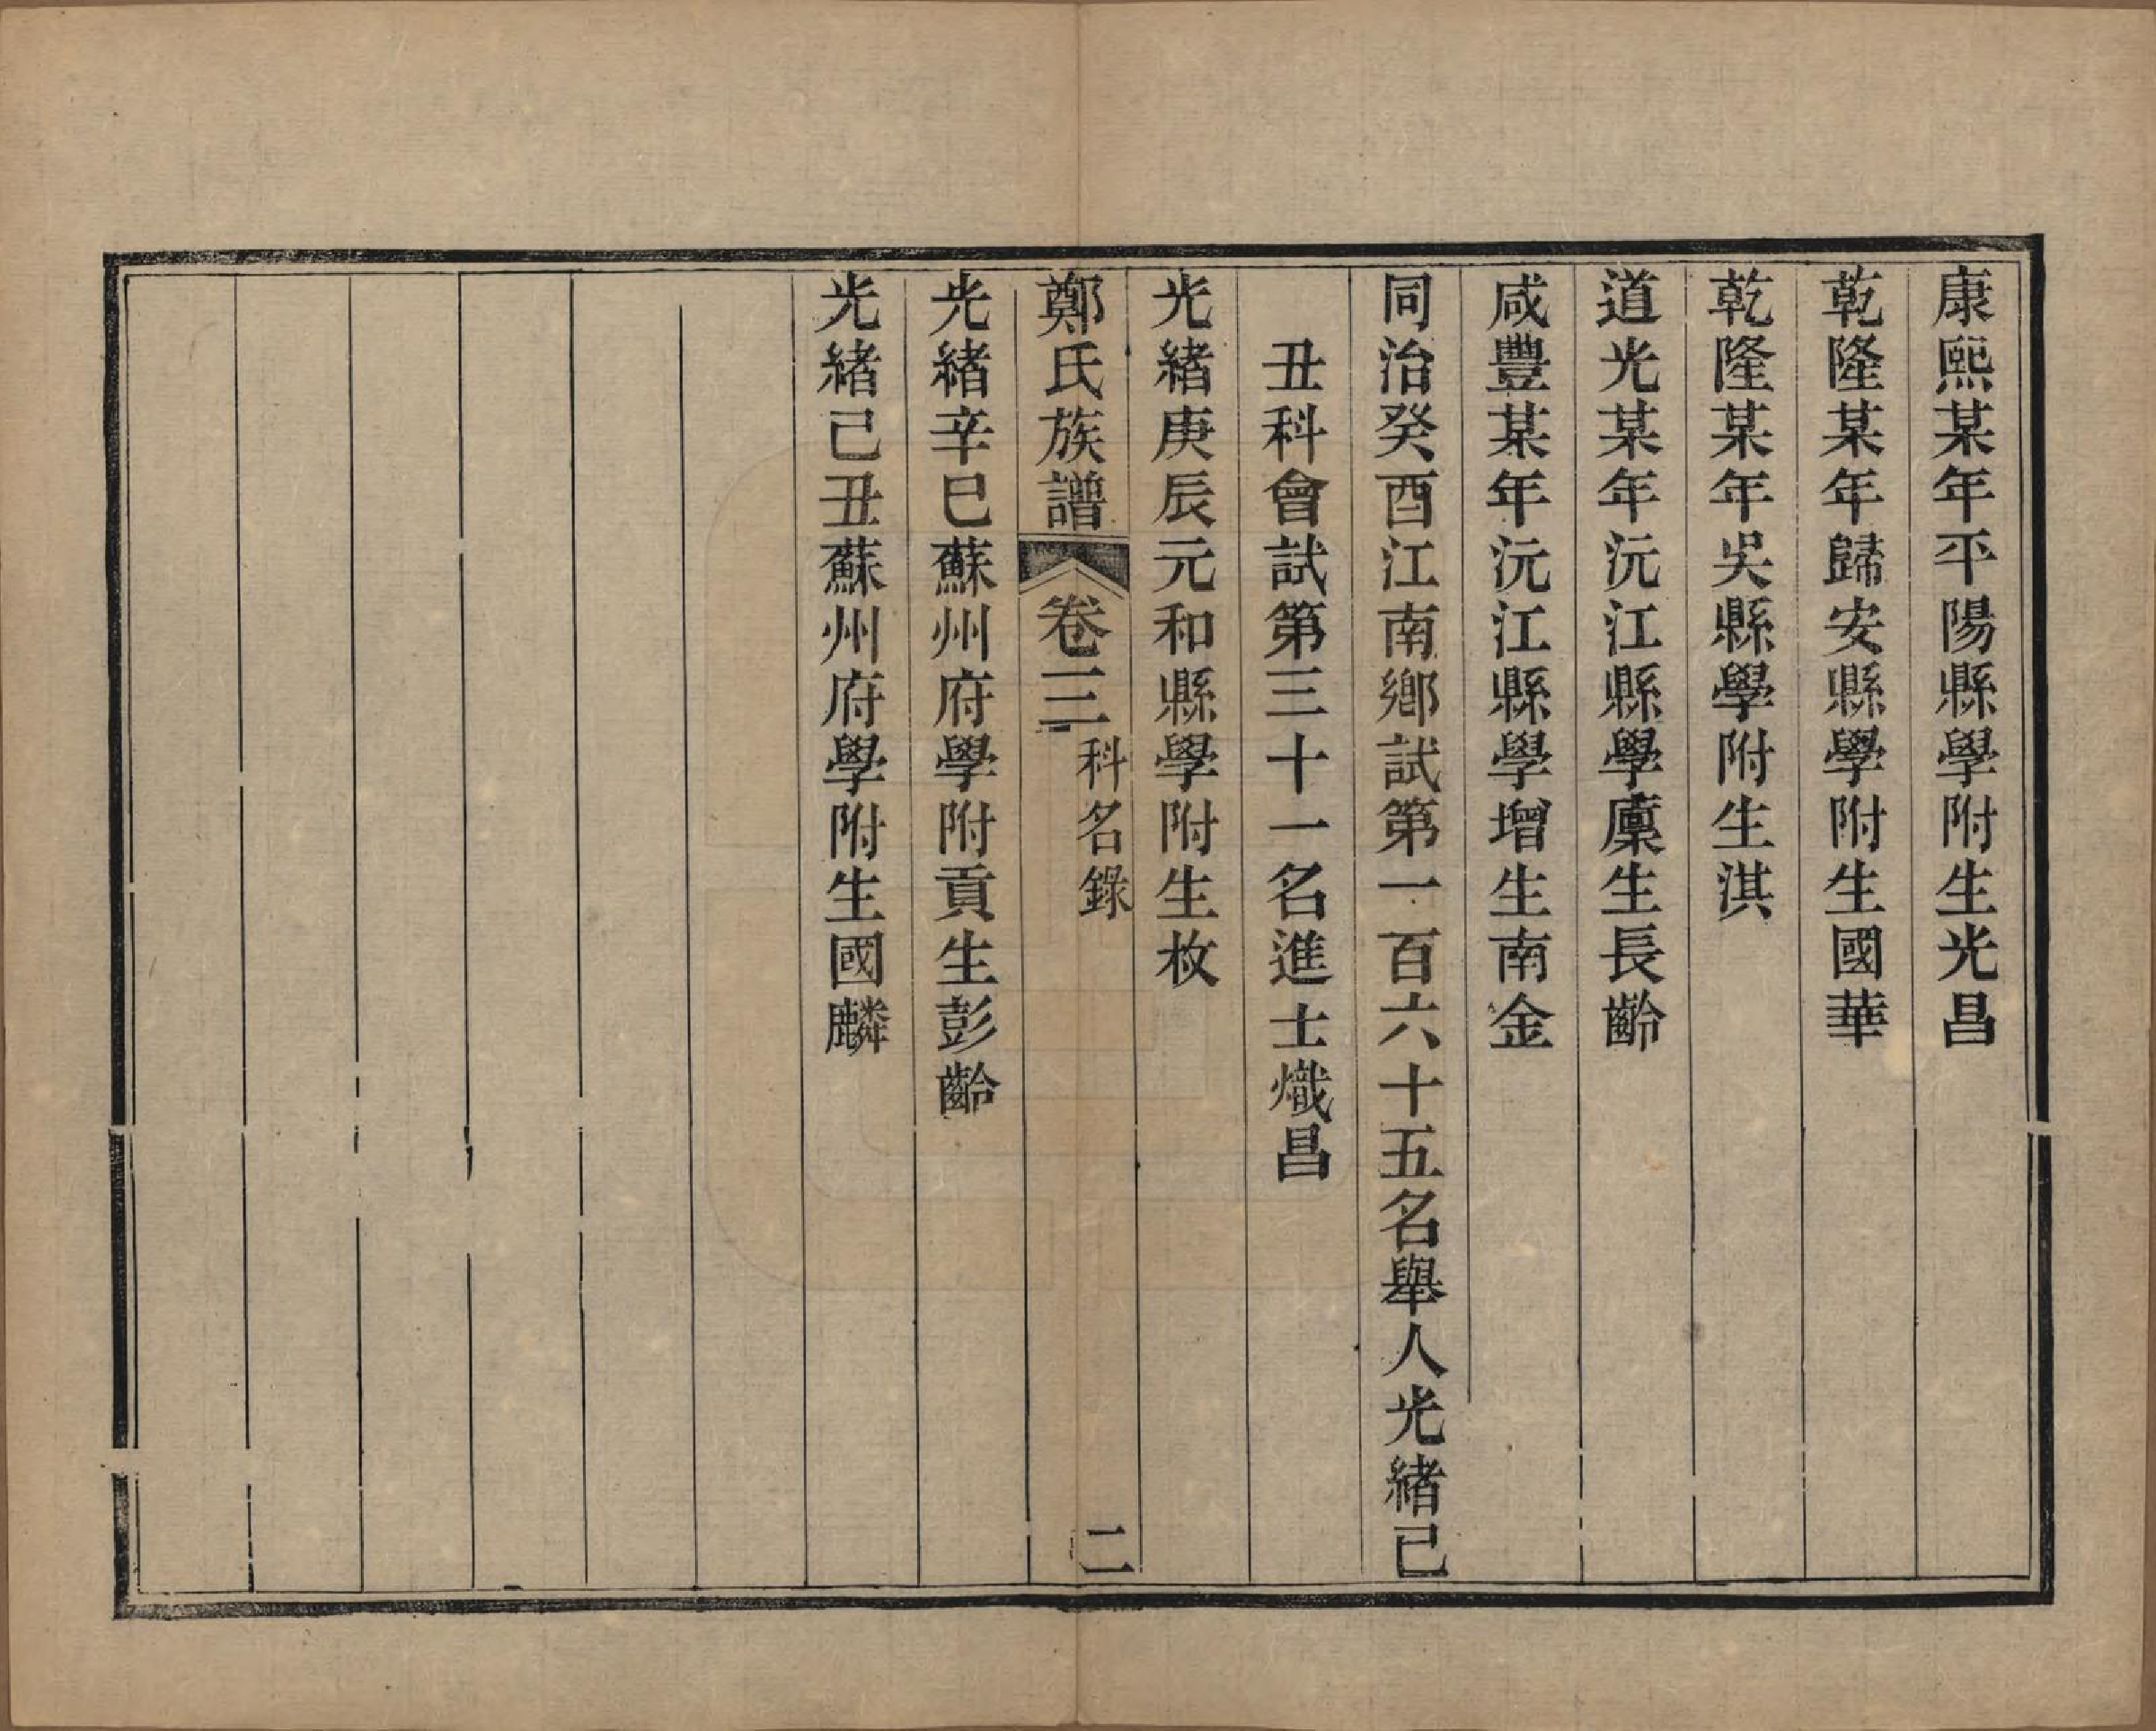 康熙某年平陽縣學附生光昌
乾隆某年歸安縣學附生國華
乾隆某年吳縣學附生淇
道光某年沅江縣學廩生長齡
咸豐某年沅江縣學增生南金
同治癸酉江南鄉試第一百六十五名舉人光緒己
丑科會試第三十一名進士熾昌
光緒庚辰元和縣學附生枚
鄭氏族譜 卷三 科名錄 二
光緒辛巳蘇州府學附貢生彭齡
光緒己丑蘇州府學附生國麟